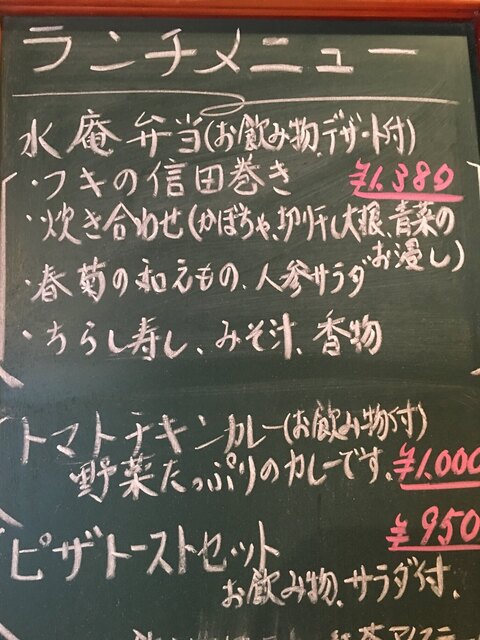 ランチメニュー
水庵弁当(お飲み物、デザート付)
・フキの信田巻き ¥1,380
・炊き合わせ(かぼちゃ、切り干し大根、青菜の
お浸し)
・春菊の和えもの、人参サラダ
・ちらし寿し、みそ汁、香物
トマトチキンカレー(お飲み物付)
野菜たっぷりのカレーです。 ¥1,000
¥950
ピザトーストセット
お飲み物、サラダ付、